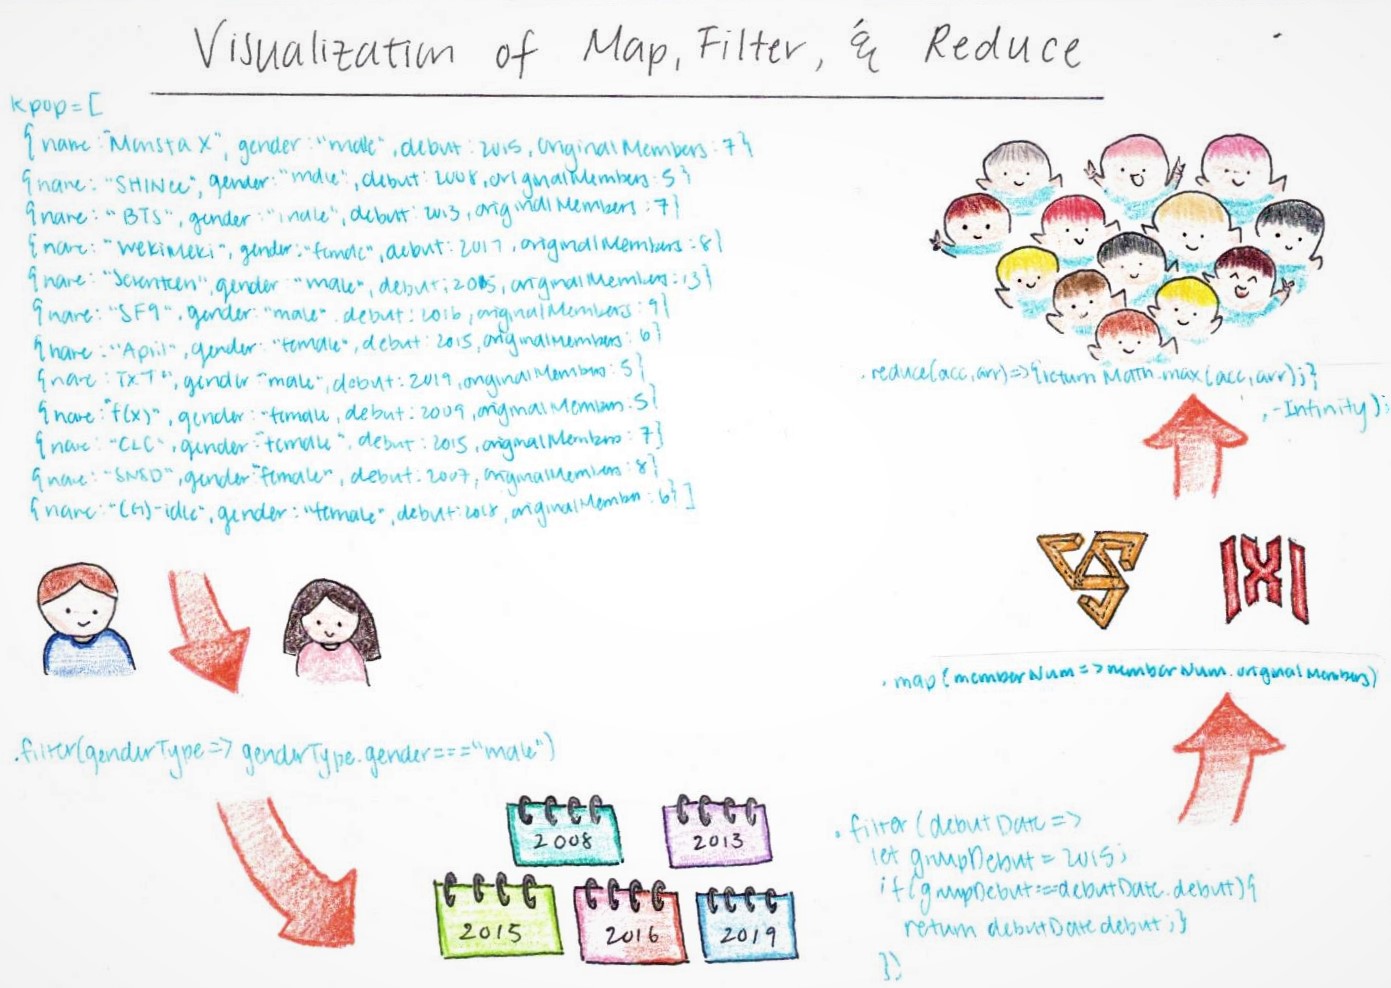 Visualization of Map, Filter, & Reduce
kpop=[
{name:"Monsta X", gender:"male", debut:2015, originalMembers:7}
{name:"SHINee", gender:"male", debut:2008, originalMembers:5}
{name:"BTS", gender:"male", debut:2013, originalMembers:7}
{name:"WekiMeki", gender:"female", debut:2017, originalMembers:8}
{name:"Seventeen", gender:"male", debut:2015, originalMembers:13}
{name:"SF9", gender:"male". debut:2016, originalMembers:9}
{name:"April", gender:"female", debut:2015, originalMembers:6}
{name:TXT", gender"male", debut:2019, originalMembers:5}
{name:"f(x)", gender:"female, debut:2009, originalMembers.5}
{name:"CLC", gender:"female", debut:2015, originalMembers:7}
{name:"SNSD", gender:"female", debut:2007, originalMembers:8}
{name:"(G)-idle", gender:"female", debut:2018, originalMembers:6}]
.filter(genderType=> genderType.gender==="male")
2008
2013
2015
2016
2019
.filter(debutDate=>
let groupDebut=2015;
if(groupDebut==debutDate.debut){
return debutDate.debut;}
})
.map(memberNum=>memberNum.originalMembers)
.reduce(acc,arr)=>{return Math.max(acc,arr);}
,-Infinity);